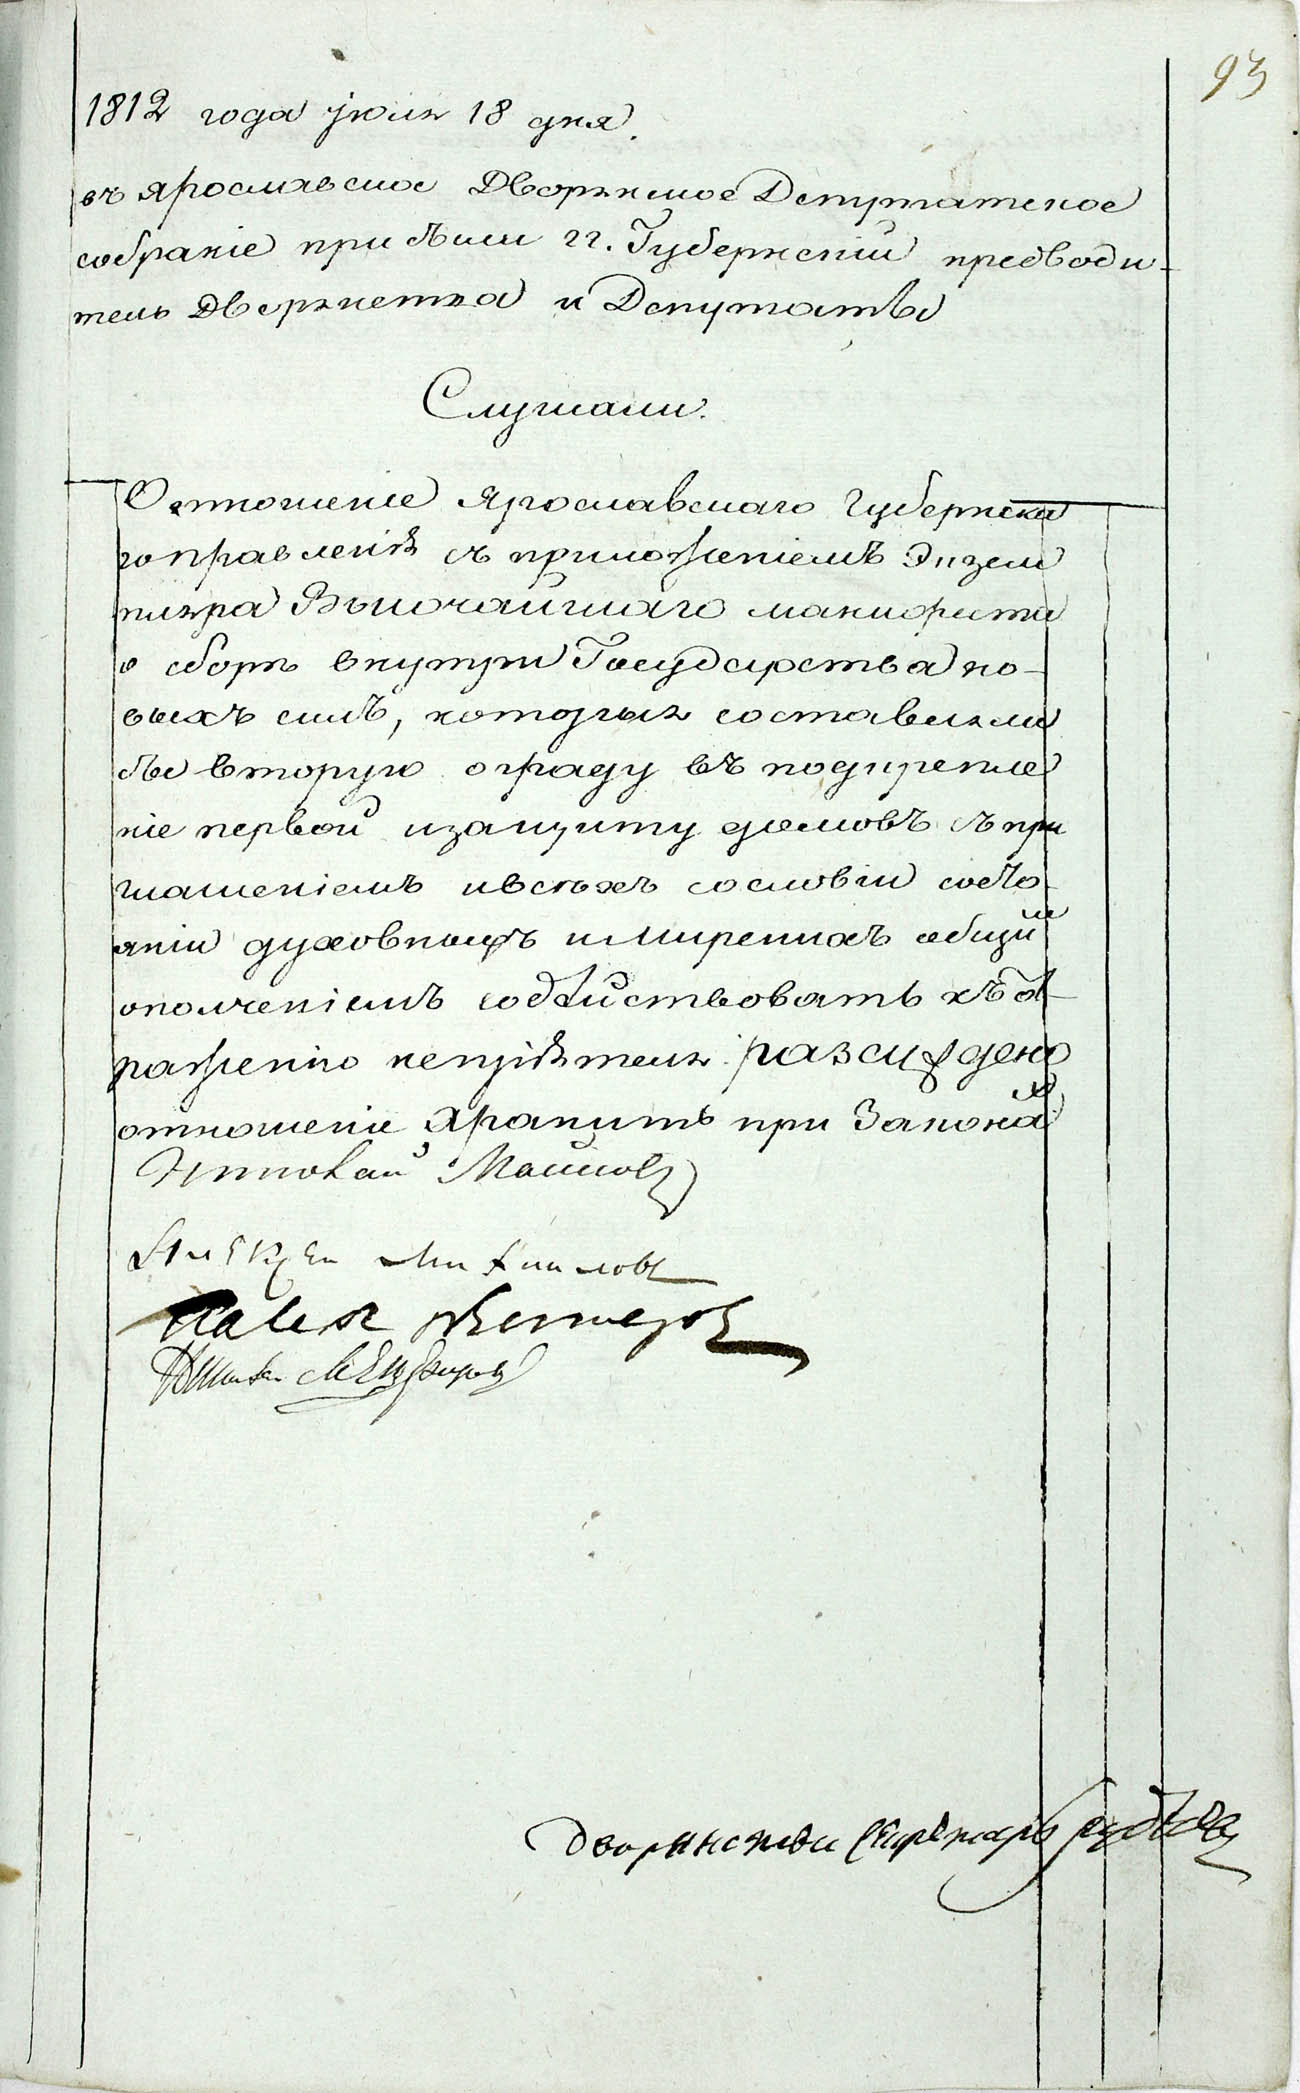 93
1812 года июля 18 дня.
въ Ярославское Дворянское Депутатское
собраніе прибыли гг. Губернскій предводи-
тель Дворянства и Депутаты
Слушали.
Отношеніе Ярославскаго Губернска
го правленія съ приложеніемъ Экзем
пляра Высочайшаго манифеста
о сборѣ внутри Государства но-
выхъ силъ, которыя составляли
бы вторую ограду въ подкрепле
ніе первой и защиту домовъ съ при
глашеніемъ и всехъ сословій состо-
яніи духовныхъ и мирскихъ общим
ополченіемъ содѣйствовать къ от-
раженію непріятеля разсуждено
отношеніе Хранить при Законах
Майковъ
Алексей Михайловъ
Павел
Дворянскій Секретарь